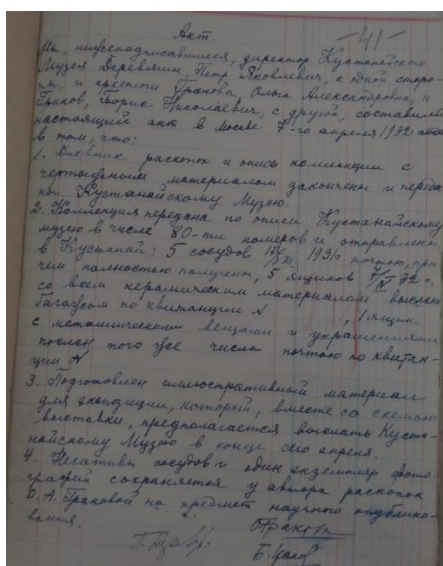 Акт
-41-
Мы, нижеподписавшиеся, директор Кустанайского
Музея Деревягин, Петр Яковлевич, с одной сторо-
ны, и Гракова, Ольга Александровна, и
Граков, Борис Николаевич, с другой, составили
настоящий акт в Москве 7-го апреля 1932 года
в том, что:
1. Дневник раскопок и опись коллекции с
чертежным материалом закончены и переда-
ны Кустанайскому Музею.
2. Коллекция передана по описи Кустанайскому
музею в числе 80-ти номеров и отправлена
в Кустанай: 5 сосудов 1931 г. почтою, при
чем полностью получены, 5 ящиков 7/IV 32 г.
со всем керамическим материалом выслан
багажом по квитанции N , 1 ящик
с металлическими вещами и украшениями
послан того же числа почтою по квитан-
ции N
3. Подготовлен иллюстративный материал
для экспозиции, который, вместе со схемою
выставки, предполагается выслать Куста-
найскому Музею в конце сего апреля.
4. Негативы сосудов и один экземпляр фото-
графий сохраняется у автора раскопок
О. А. Граковой на предмет научного опублико-
вания.